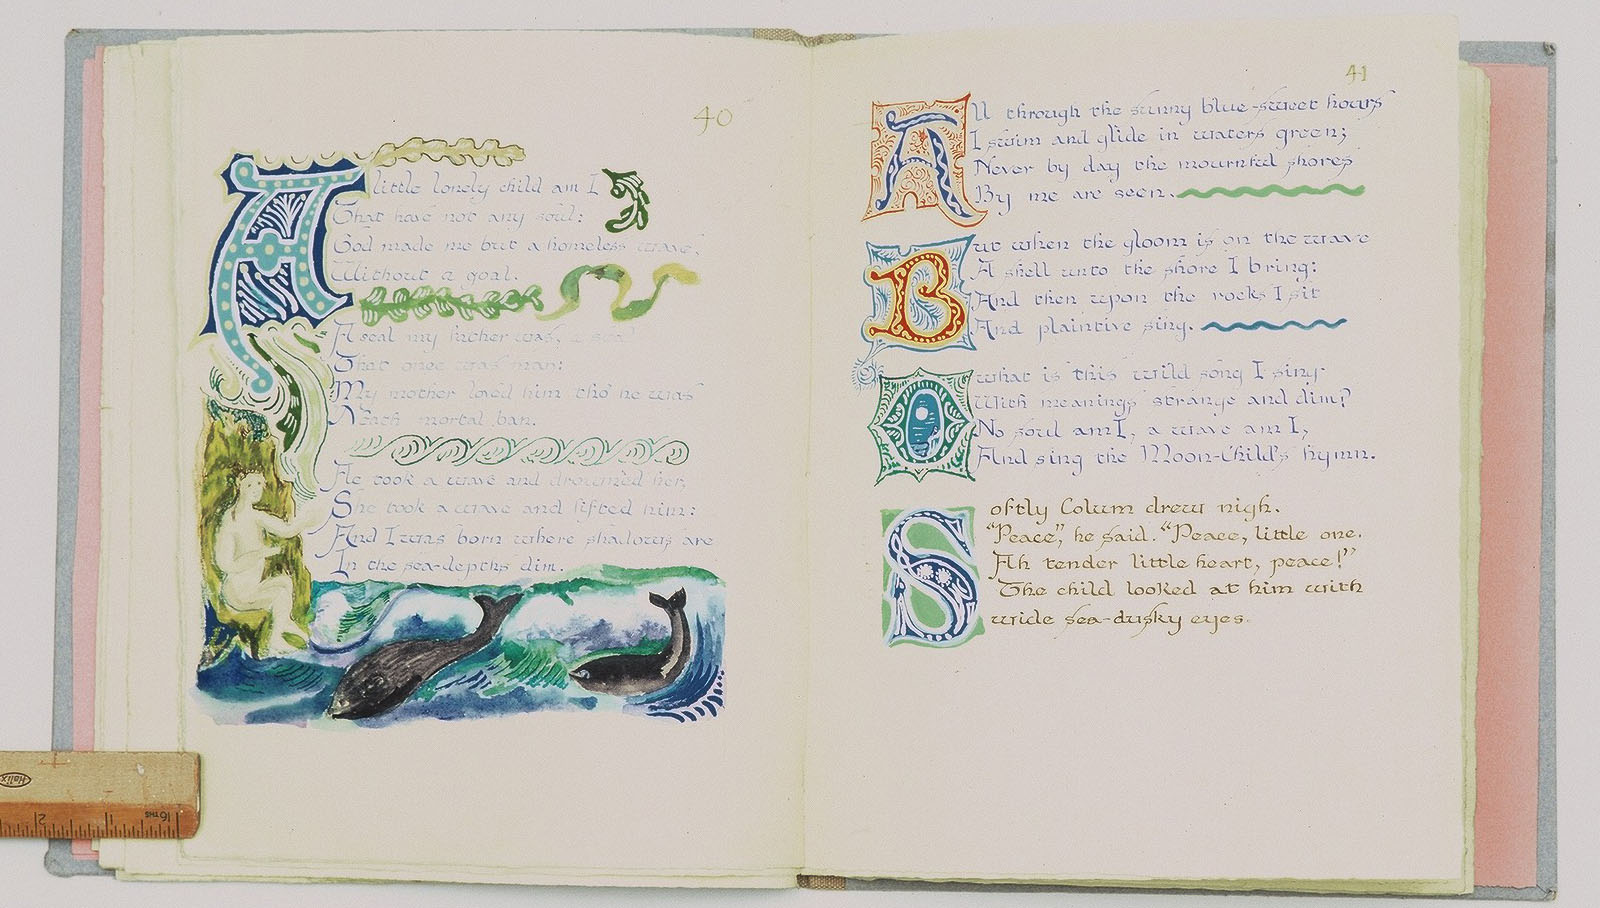 40
A little lonely child am I
That have not any soul:
God made me but a homeless wave,
Without a goal.
A seal my father was, a seal
That once was man:
My mother loved him tho' he was
'Neath mortal ban.
He took a wave and drownèd her,
She took a wave and lifted him:
And I was born where shadows are
In the sea-depths dim.
41
All through the sunny blue-sweet hours
I swim and glide in waters green;
Never by day the mournful shores
By me are seen.
But when the gloom is on the wave
A shell unto the shore I bring:
And then upon the rocks I sit
And plaintive sing.
O what is this wild song I sing
With meanings strange and dim?
No soul am I, a wave am I,
And sing the Moon-Child's hymn.
Softly Colum drew nigh.
"Peace", he said. "Peace, little one.
Ah tender little heart, peace!"
The child looked at him with
wide sea-dusky eyes.
Helix
2
16THS